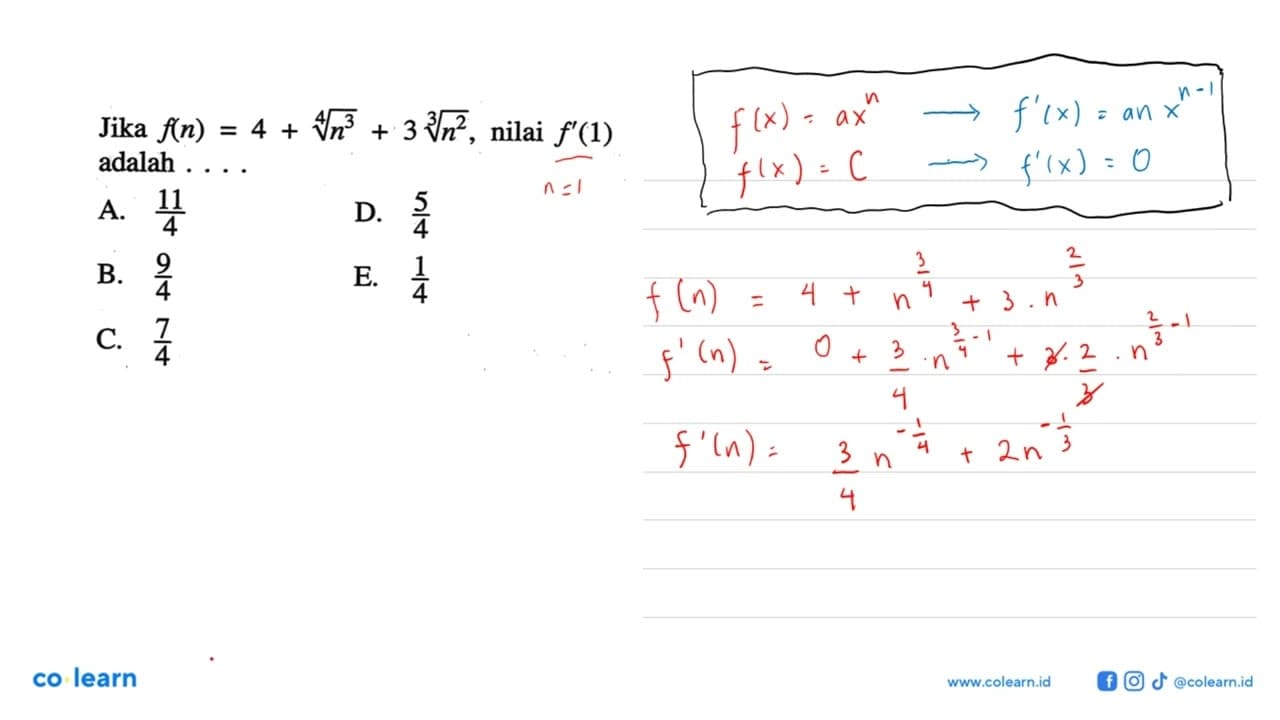 Jika f(n) = 4 + ∜n³ + 3 ∛n², nilai f'(1)
adalah . . . .
n=1
A. 11/4 D. 5/4
B. 9/4 E. 1/4
C. 7/4
f(x) = ax^n → f'(x) = an x^(n-1)
f(x) = C → f'(x) = 0
f(n) = 4 + n^(3/4) + 3 . n^(2/3)
f'(n) = 0 + 3/4 . n^(3/4 - 1) + 3 . 2/3 . n^(2/3 - 1)
f'(n) = 3/4 n^(-1/4) + 2n^(-1/3)
co learn
www.colearn.id @colearn.id